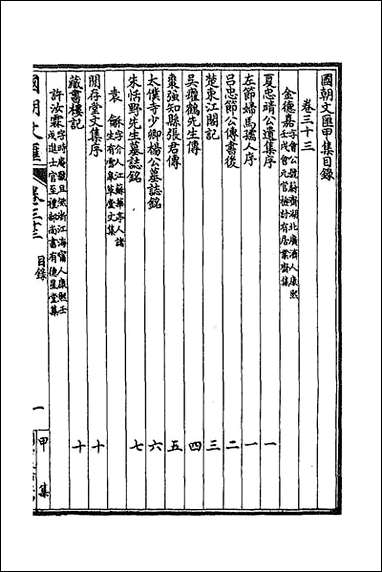 國朝文匯甲集目錄
卷三十三
金德嘉字會公號蔚齋湖北廣濟人康熙壬戌會元官檢討有居業齋集
夏忠靖公遺集序 一
左節婦馬孺人序 一
呂忠節公傳書後 二
楚東江閣記 三
吳耀鶴先生傳 四
棗強知縣張君傳 五
太僕寺少卿楊公墓誌銘 六
朱恬野先生墓誌銘 七
袁龢字介人江蘇華亭人諸生有雪泉草堂文集
閒存堂文集序 十
藏書樓記 十
許汝霖字時庵號且然浙江海甯人康熙壬戌進士官至禮部尚書有德星堂集
國朝文匯 卷三十三 目錄 一 甲集